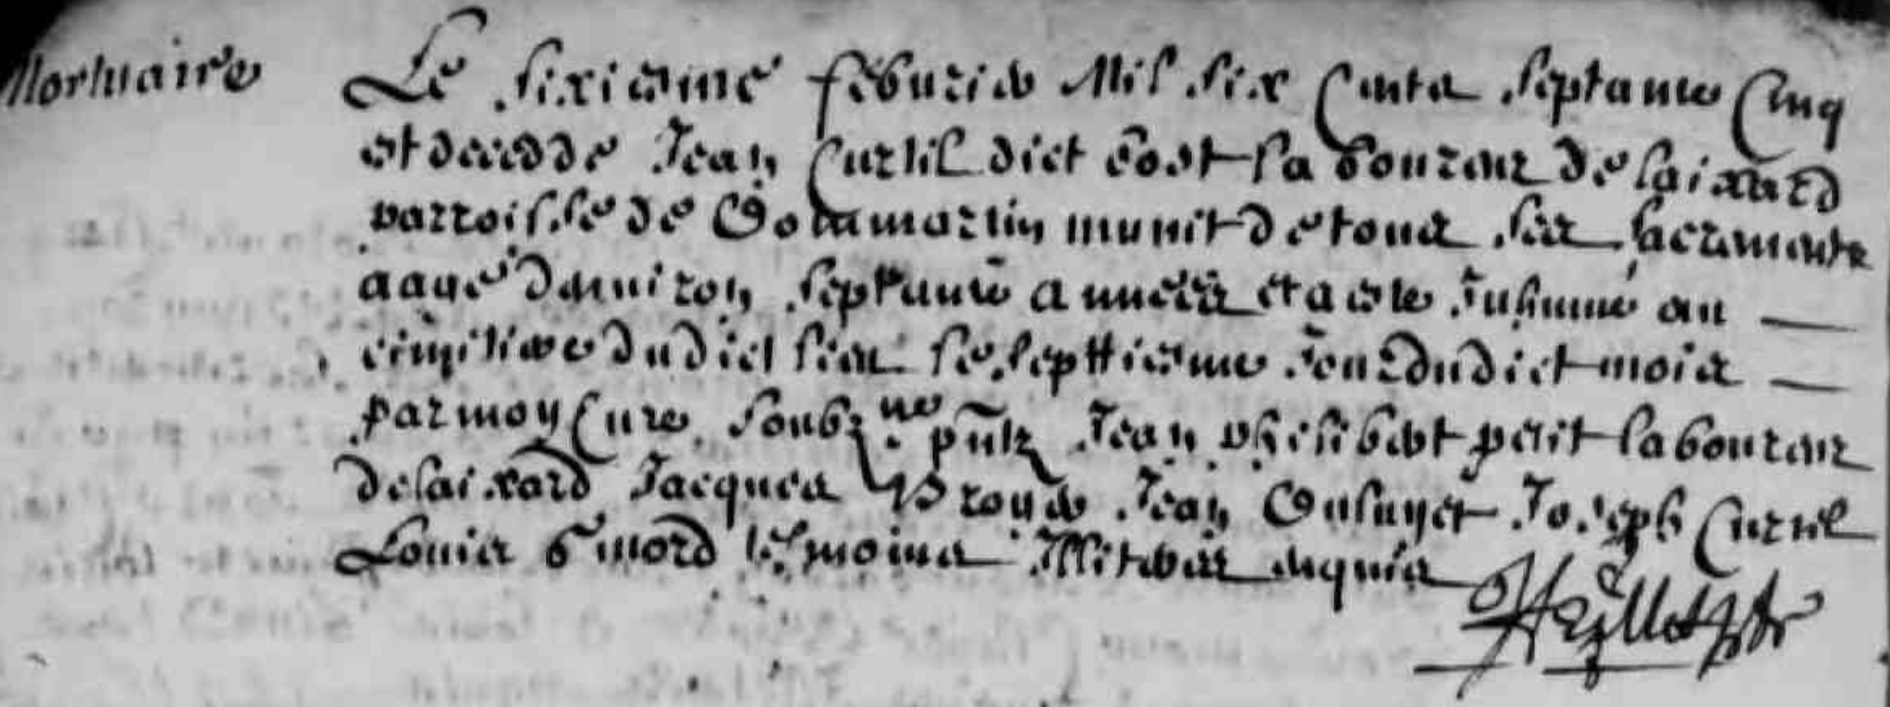 Mortuaire
Le sixieme febvrier Mil six Cents septante Cinq
est decedde Jean Curtil dict laboureur de laixard
parroisse de Dommartin munit de tous ses sacrements
aagé denviron septante années et a este Inhumé au
cimitiere dudict lieu le septtieme Jour dudict mois
par moy Cure soubz.ne pñtz Jean petit laboureur
de laixard Jacques Jean Joseph Curtil
Louis tesmoins Illiteres enquis